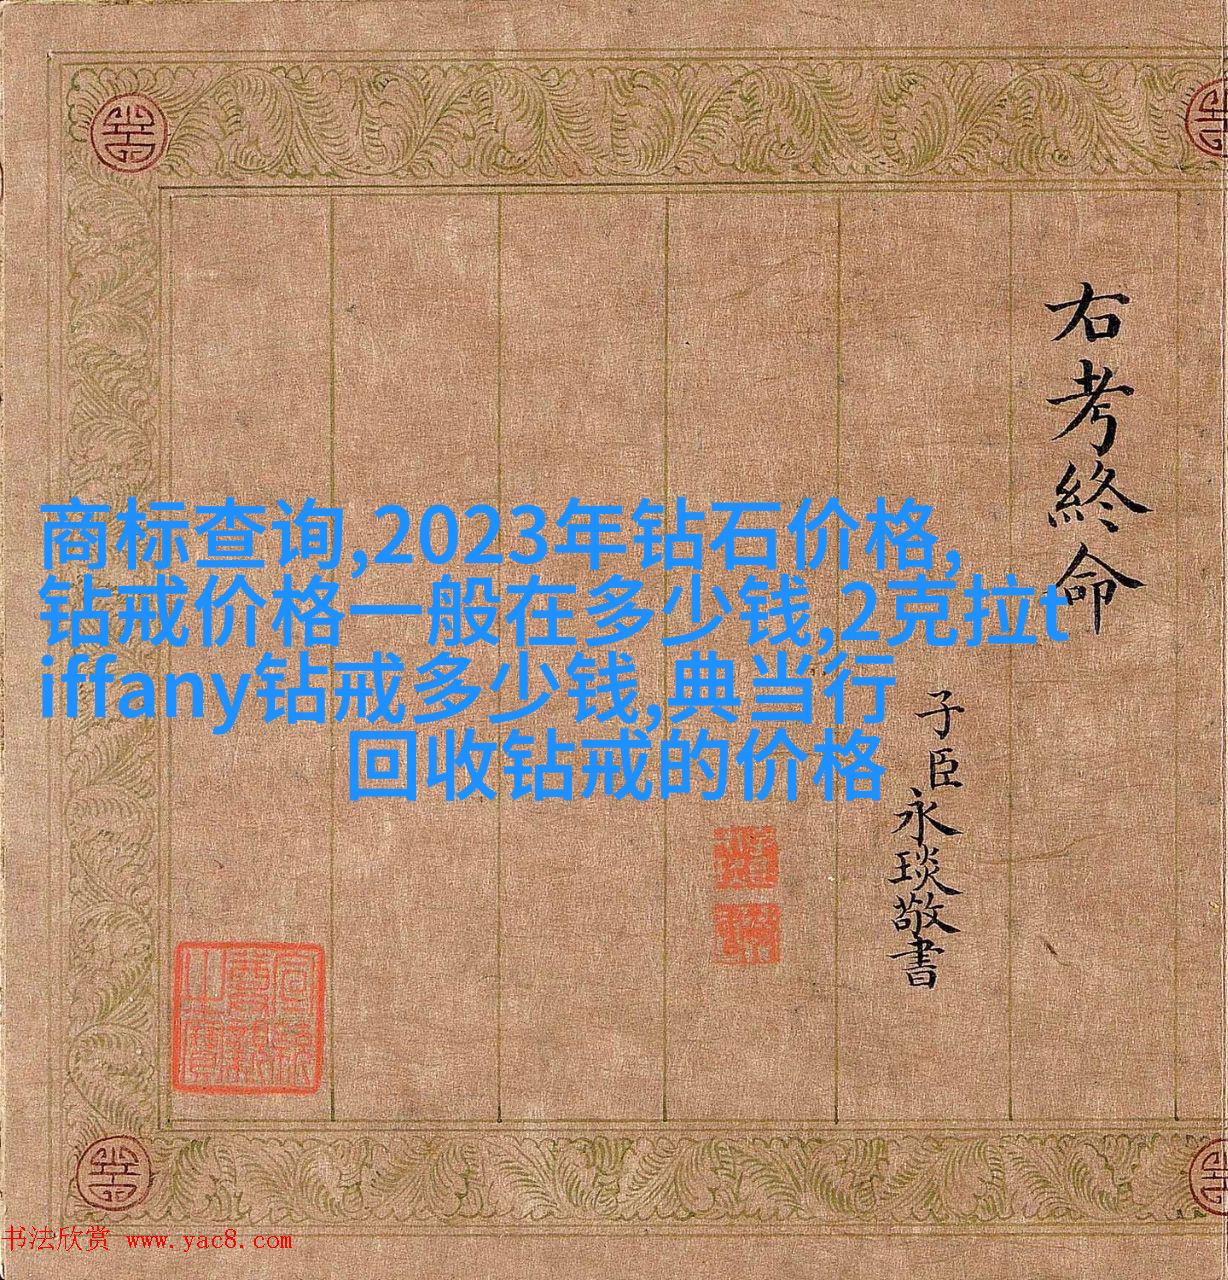 右考終命
子臣永琰敬書
商标查询,2023年钻石价格,
钻戒价格一般在多少钱,2克拉t
iffany钻戒多少钱,典当行
回收钻戒的价格
书法欣赏 www.yac8.com